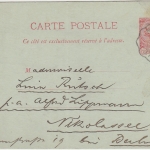 CARTE POSTALE
Ce côté est exclusivement réservé à l'adresse.
Mademoiselle
p.a. Alfred Lippmann
Nikolassee
19 bei Berlin